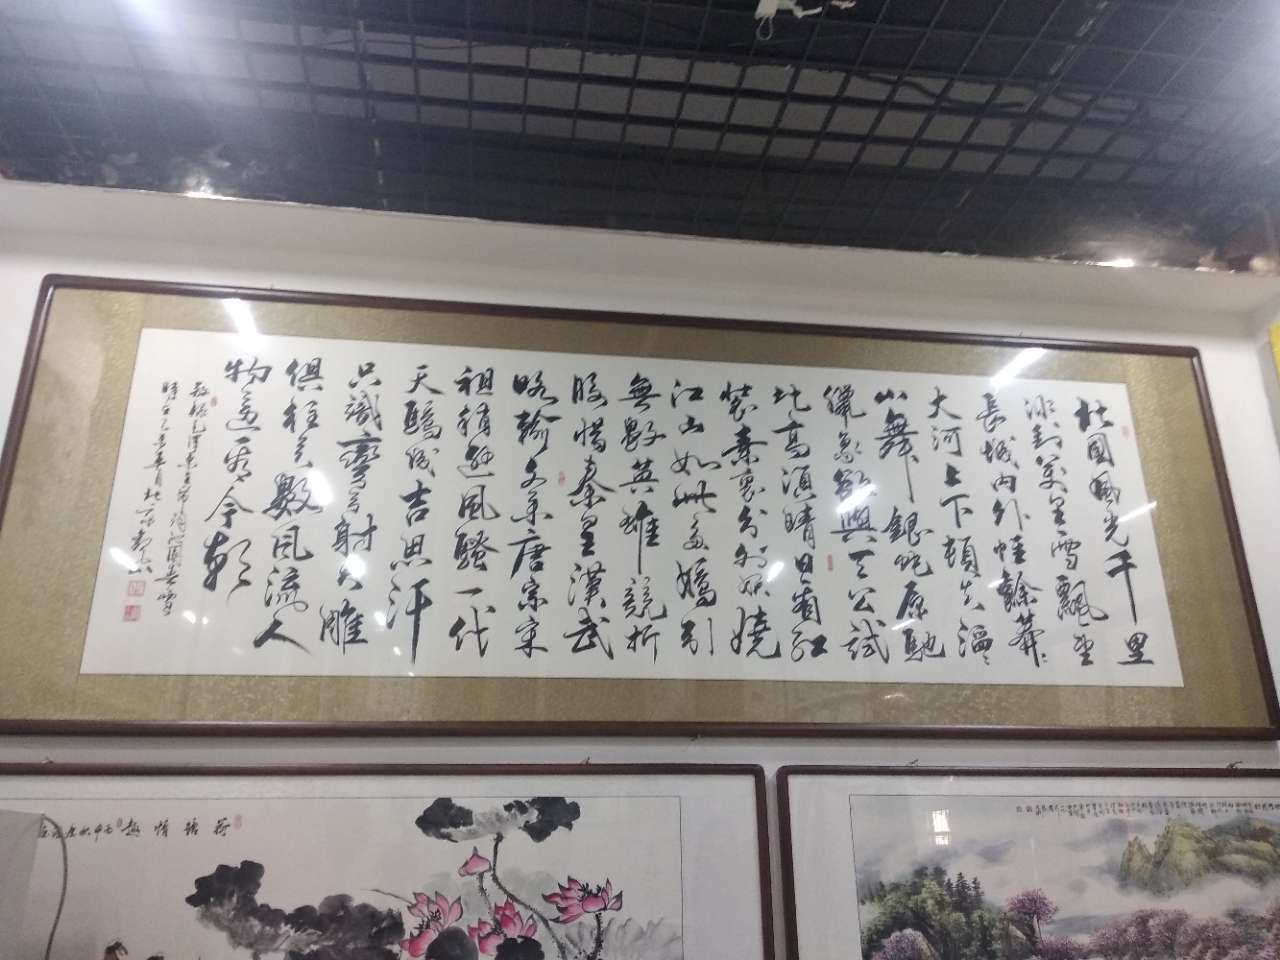 北國風光千里
冰封萬里雪飄望
長城内外惟餘莽〻
大河上下頓失滔〻
山舞銀蛇原馳
蠟象欲與天公試
比高須晴日看紅
裝素裹分外妖嬈
江山如此多嬌引
無數英雄競折
腰惜秦皇漢武
略輸文采唐宗宋
祖稍遜風騷一代
天驕成吉思汗
只識彎弓射大雕
俱往矣數風流人
物還看今朝
敬錄毛澤東主席詞沁園春雪
荷塘情趣